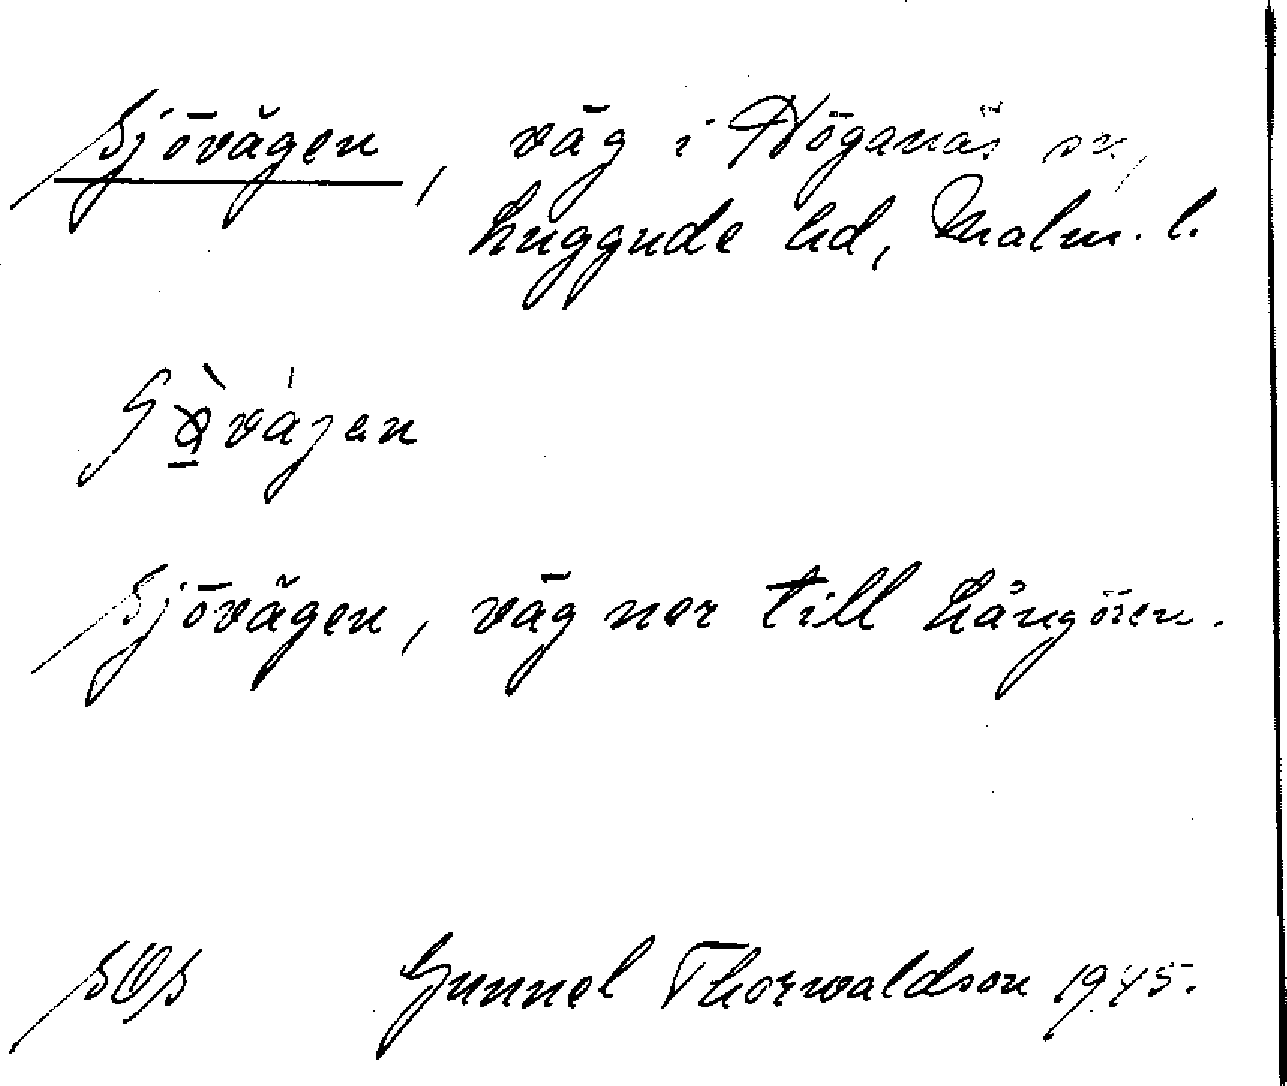 Sjövägen, väg i Höganäs sn,
Luggude hd, Malm. l.
Sjövägen, väg ner till Långören.
SOS Gunnel Thorwaldson 1945.